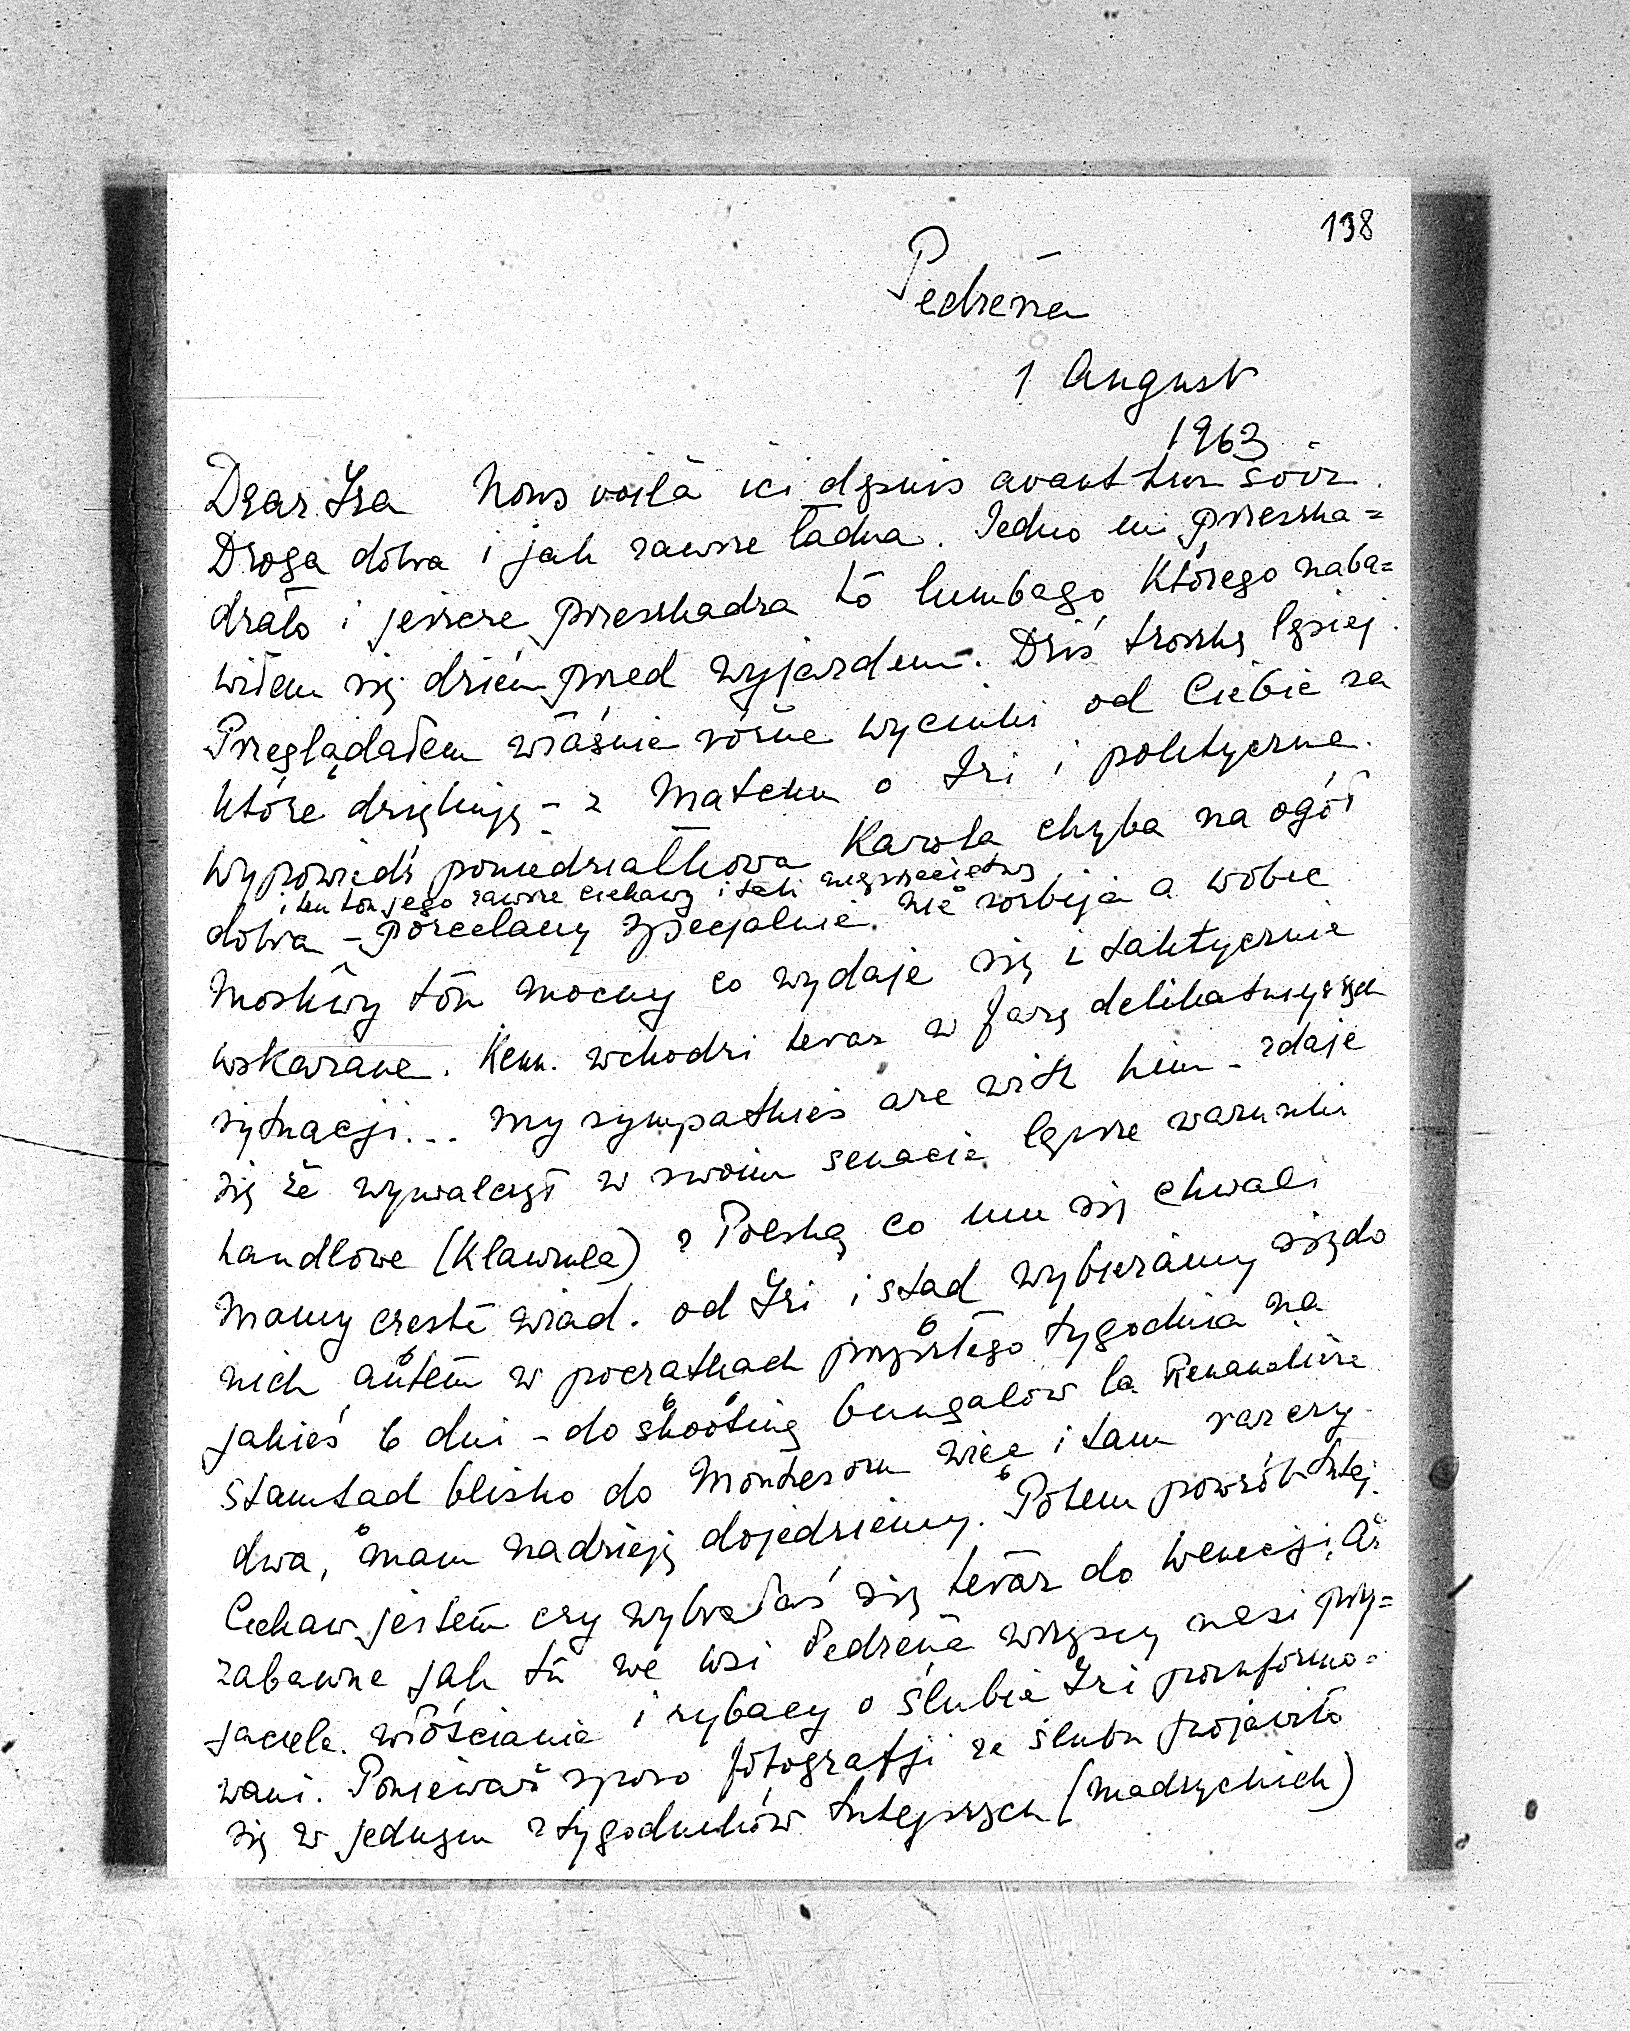 138
Pedreña
1 August
1963.
Dear Iza Nous voilà ici depuis avant hier soir.
Droga dobra i jak zawsze ładna. Jedno mi przeszka=
dzało i jeszcze przeszkadza to lumbago którego naba=
wiłem się dzień przed wyjazdem. Dziś troszkę lepiej.
Przeglądałem właśnie różne wycinki od Ciebie za
które dziękuję – z Matchu o Izi i polityczne.
Wypowiedź poniedziałkowa Karola chyba na ogół
i ten ton jego zawsze ciekawy i taki
dobra – porcelany specjalnie nie rozbija a wobec
Moskwy ton mocny co wydaje się i taktycznie
wskazane. Kenn. wchodzi teraz w fazę delikatnych
sytuacji... my sympathies are with him – zdaje
się że wywalczył w swoim senacie lepsze warunki
handlowe (Klawzula) z Polską co mu się chwali
Mamy częste wiad. od Izi i stąd wybieramy się do
nich autem w początkach przyszłego tygodnia na
jakieś 6 dni – do shooting bungalow la Renaudière
Stamtąd blisko do Montrésoru więc i tam raz czy
dwa, mam nadzieję dojedziemy. Potem powrót tutaj.
Ciekaw jestem czy wybrałaś się teraz do Wenecji. Aż
zabawne jak tu we wsi Pedreña wszyscy nasi przy=
jaciele włościanie i rybacy o ślubie Izi poinformo=
wani. Ponieważ sporo fotografji ze ślubu pojawiło
się w jednym z tygodników tutejszych (madryckich)